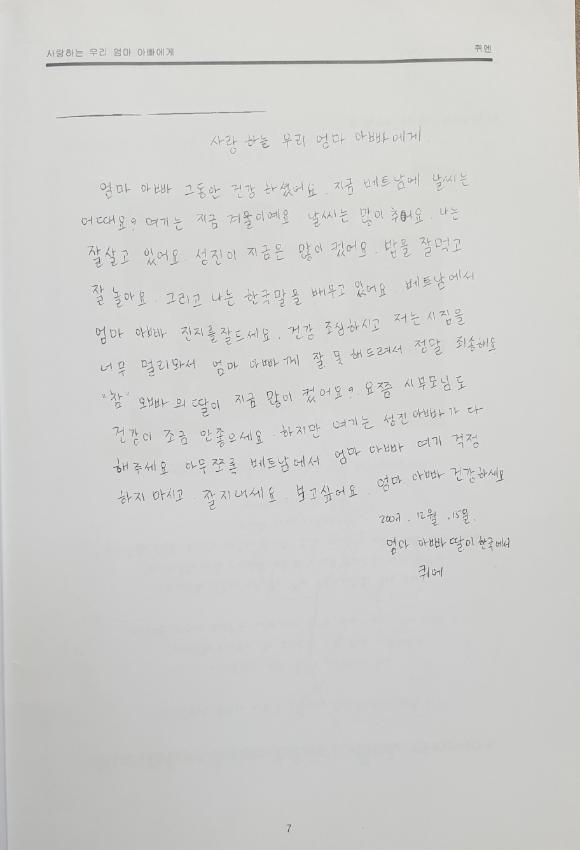 사랑하는 우리 엄마 아빠에게 쥐엔
사랑 하늘 우리 엄마 아빠에게
엄마 아빠 그동안 건강 하셨어요. 지금 베트남에 날씨는
어때요? 여기는 지금 겨울이예요 날씨는 많이 추워요. 나는
잘살고 있어요. 성진이 지금은 많이 컸어요. 밥을 잘먹고
잘 놀아요. 그리고 나는 한국말을 배우고 있어요. 베트남에서
엄마 아빠 진지를잘드세요. 건강 조심하시고 저는 시집을
너무 멀리와서 엄마 아빠께 잘 못 해드려서 정말 죄송해요
"참" 오빠의 딸이 지금 많이 컸어요? 요즘 시부모님도
건강이 조금 안좋으세요. 하지만 여기는 성진아빠가 다
해주세요 아무쪼록 베트남에서 엄마 아빠 여기 걱정
하지 마시고. 잘지내세요. 보고싶어요. 엄마 아빠 건강하세요
12월. 15일.
엄마 아빠 딸이 한국에서
7